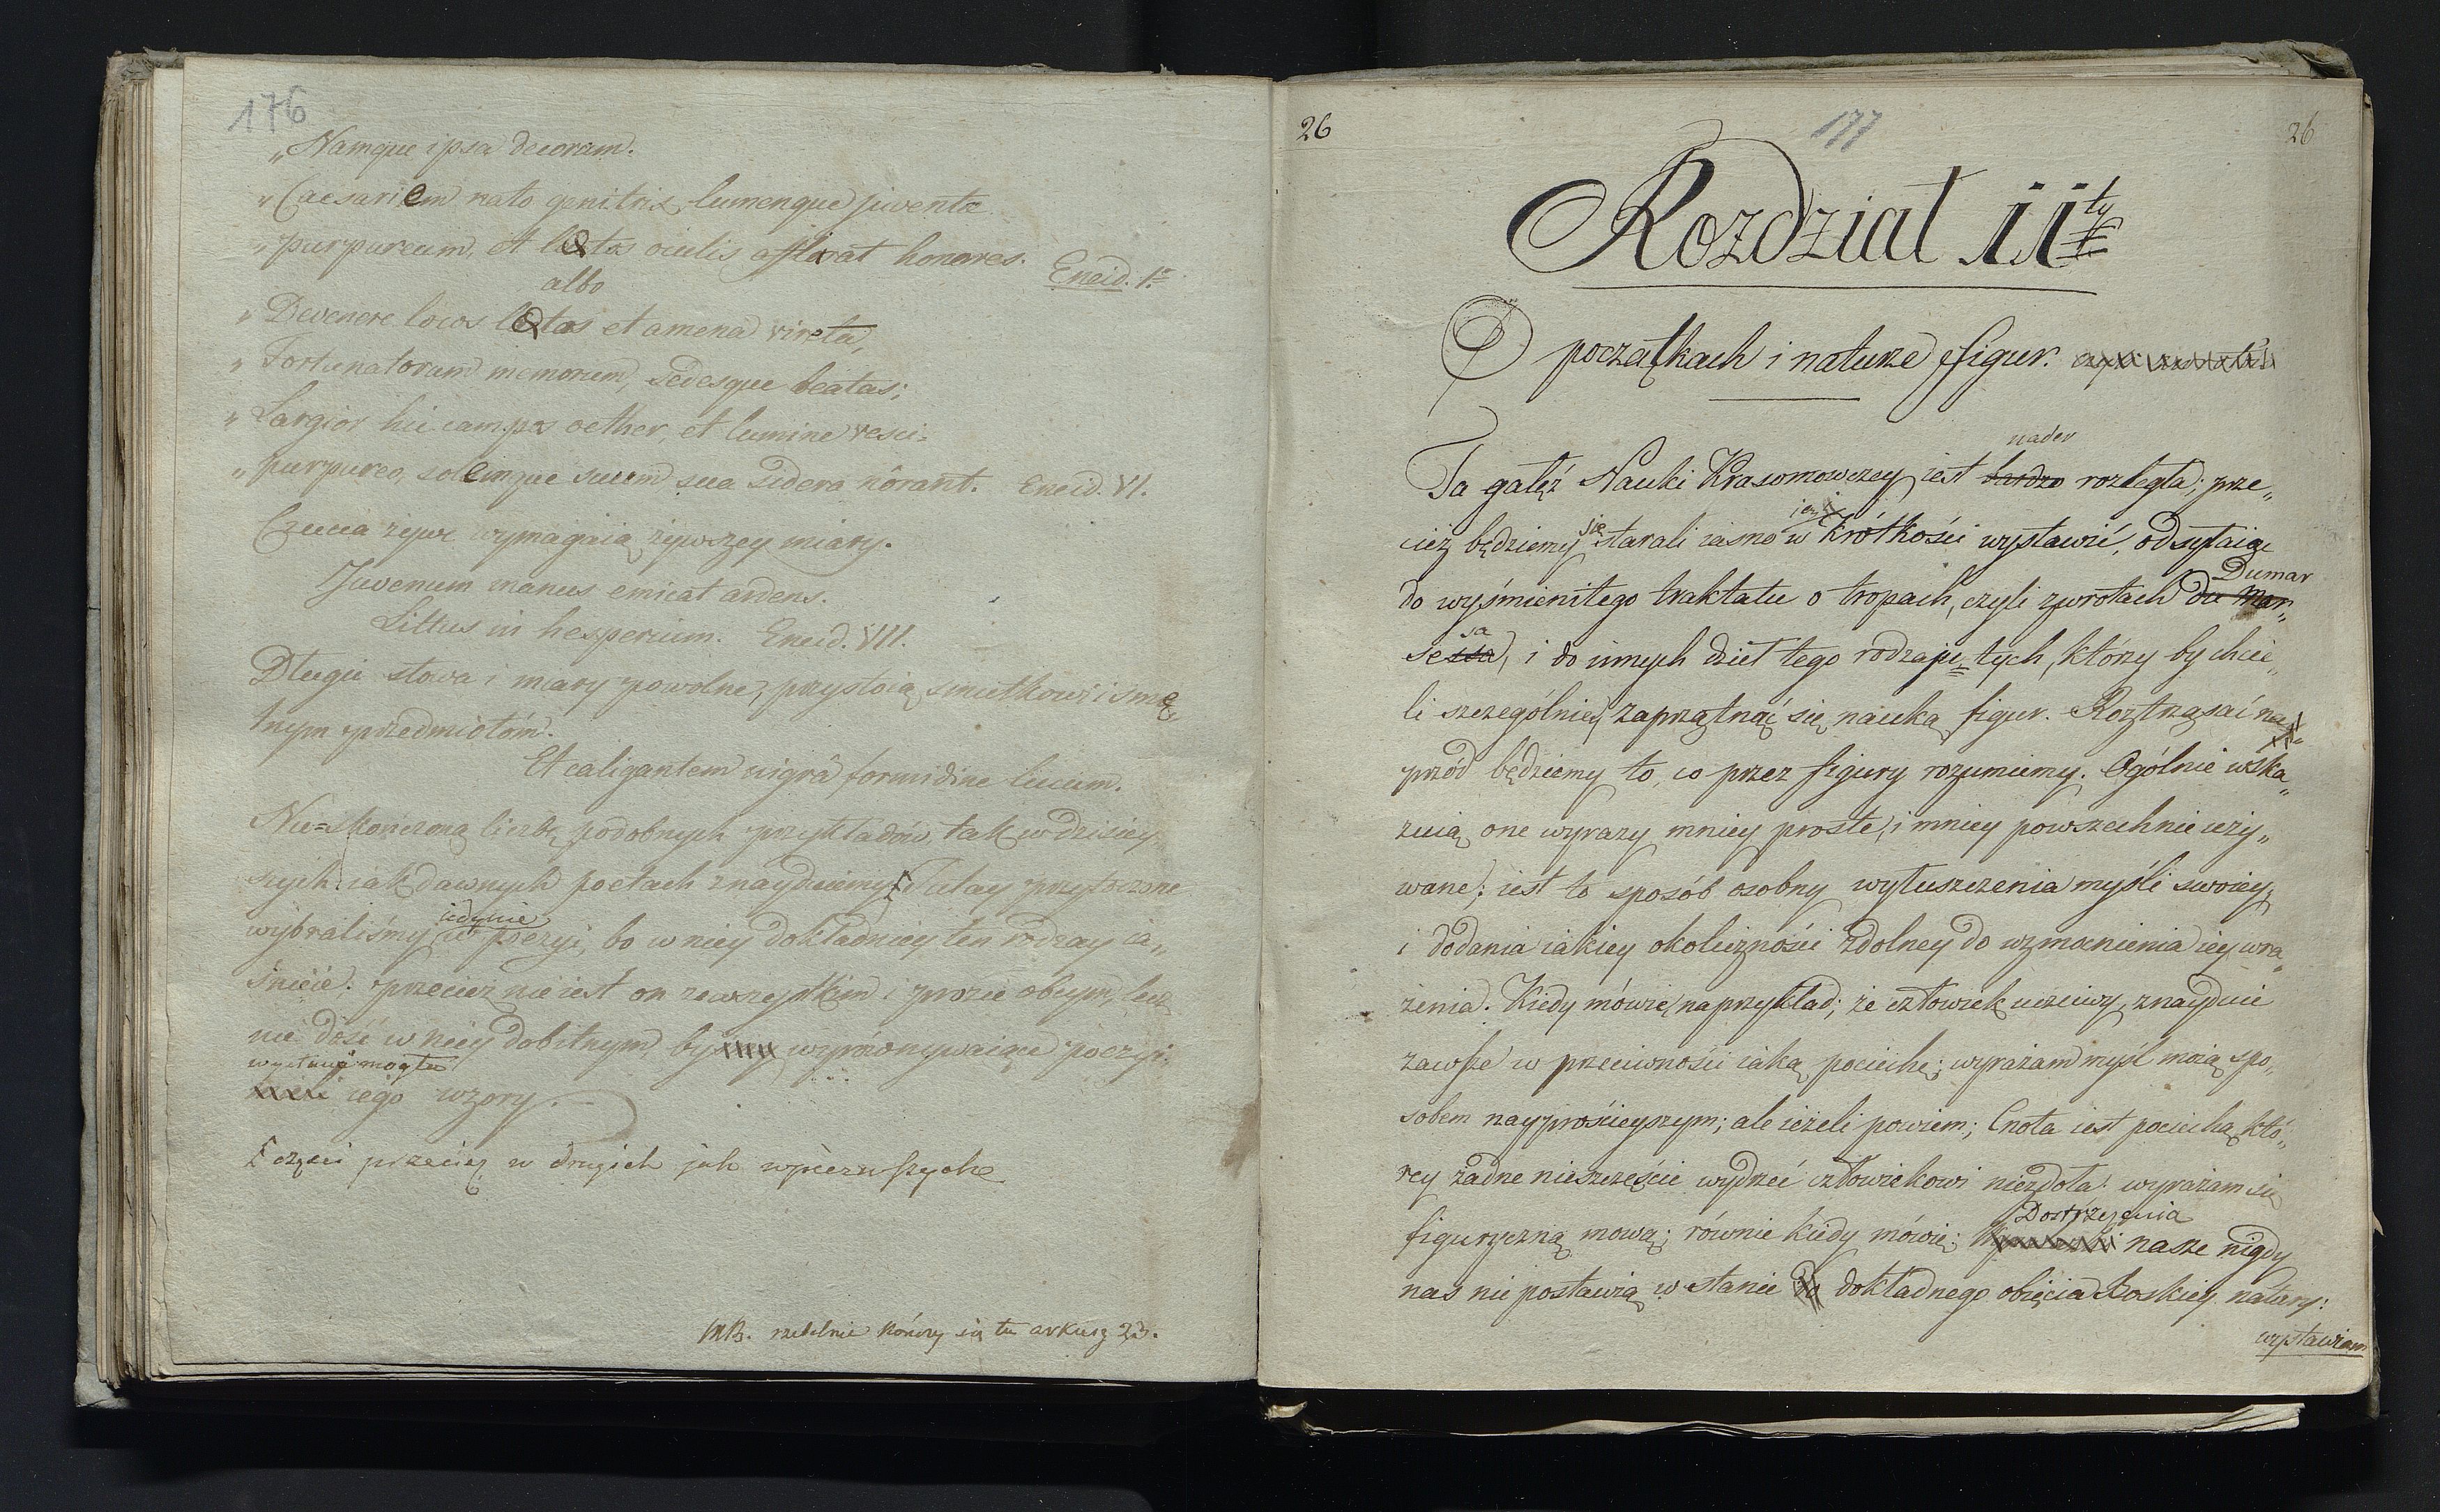 176
„Namque ipsa decoram.
„Caesariem nato genitrix, lumenque juventæ
„purpureum, et lætos oculis afflarat honores. Eneid. 1.
albo
„Devenere locos lætos et amena vireta,
„Fortunatorum nemorum, sedesque beatas;
„Largior hic campos oether, et lumine vesci-
„purpureo, solemque suum sua sidera nôrant. Eneid. VI.
Czucia żywe wymagaią żywszey miary.
Juvenum manus emicat ardens.
Littus in hesperium. Eneid. VII.
Długie słowa i miary powolne, przystoią smutkowi i smę„
tnym przedmiotóm.
Et caligantem nigrâ formidine lucum.
Nie=skończoną liczbę podobnych przykładów, tak w dzisiey
szych iak dawnych poetach znaydziemy. Tutay przytoczone
iedynie
wybraliśmy w poezyi, bo w niey dokładniey ten rodzay ia„
śnieie: przecież nie iest on zewszystkim i prozie obcym, lecz
nie dość w niey dobitnym, by wyrównywaiące poezyi
wystawić mogła
iego wzory.
części przecież w drugich jak w pierwszych
NB. rzetelnie kończy się tu arkusz 23.
26
177
26
Rozdział II ty
O początkach i naturze figur.
nader
Ta gałęź Nauki Krasomowczey iest bardzo rozległa; prze„
się
cież będziemy starali iasno w krótkości wystawić, odsyłaiąc
Dumar
do wyśmienitego traktatu o tropach, czyli zwrotach du Mar„
sa
sessa, i do innych dzieł tego rodzaju tych, którzy by chcie„
li szczególniey zaprzątnąć się nauką figur. Roztrząsać na„
przód będziemy to, co przez figury rozumiemy. Ogólnie wska„
zuią one wyrazy mniey proste, i mniey powszechnie uży„
wane; iest to sposób osobny wytłuszczenia myśli swoiey,
i dodania iakiey okoliczności zdolney do wzmocnienia iey wra„
żenia. Kiedy mówię, naprzykład; że człowiek uczciwy, znayduie
zawsze w przeciwności iaką pociechę; wyrażam myśl moią spo„
sobem nayprościeyszym; ale ieżeli powiem; Cnota iest pociechą, któ„
rey żadne nieszczęście wydrzeć człowiekowi niezdoła: wyrażam się
Dostrzeżenia
figuryczną mową; równie kiedy mówię; nasze nigdy
nas nie postawią w stanie do dokładnego obięcia Boskiey natury:
wystawiam